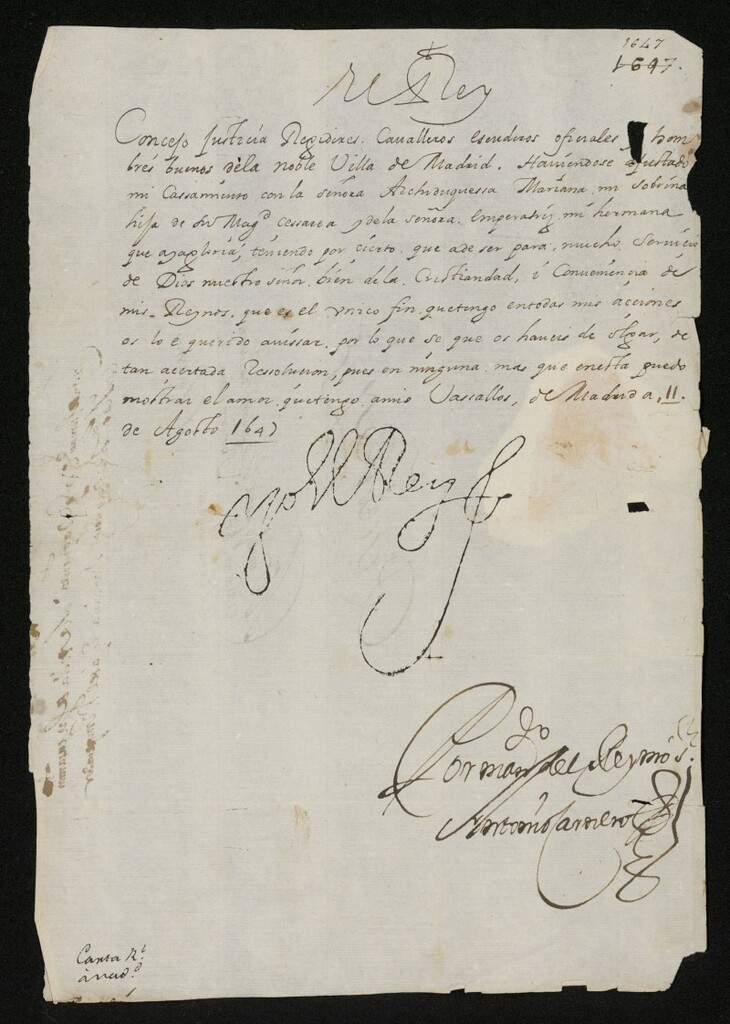 1647
1697.
El Rey
Concejo Justicia Regidores. Cavalleros escuderos ofiçiales y hom
bres buenos dela noble Villa de Madrid. Haviendose ajustado
mi Cassamiento con la señora Archiduquessa Mariana mi sobrina
hija de Su Magd. cessarea y dela señora. Emperatriz mi hermana
que aya gloria, teniendo por cierto. que ade ser para. mucho servicio
de Dios nuestro señor bien dela. Cristiandad, i Conveniençia de
mis Reynos. que es el vnico fin que tengo en todas mis acciones
os lo é querido avissar. por lo que se que os haveis de olgar, de
tan acertada Ressolucion, pues en ninguna mas que en esta puedo
mostrar el amor que tengo amis Vassallos, de Madrid a, 11.
de Agosto 1647
yo el Rey
Por mando del Rey nro s.r
Antonio Carnero
Carta Rl.